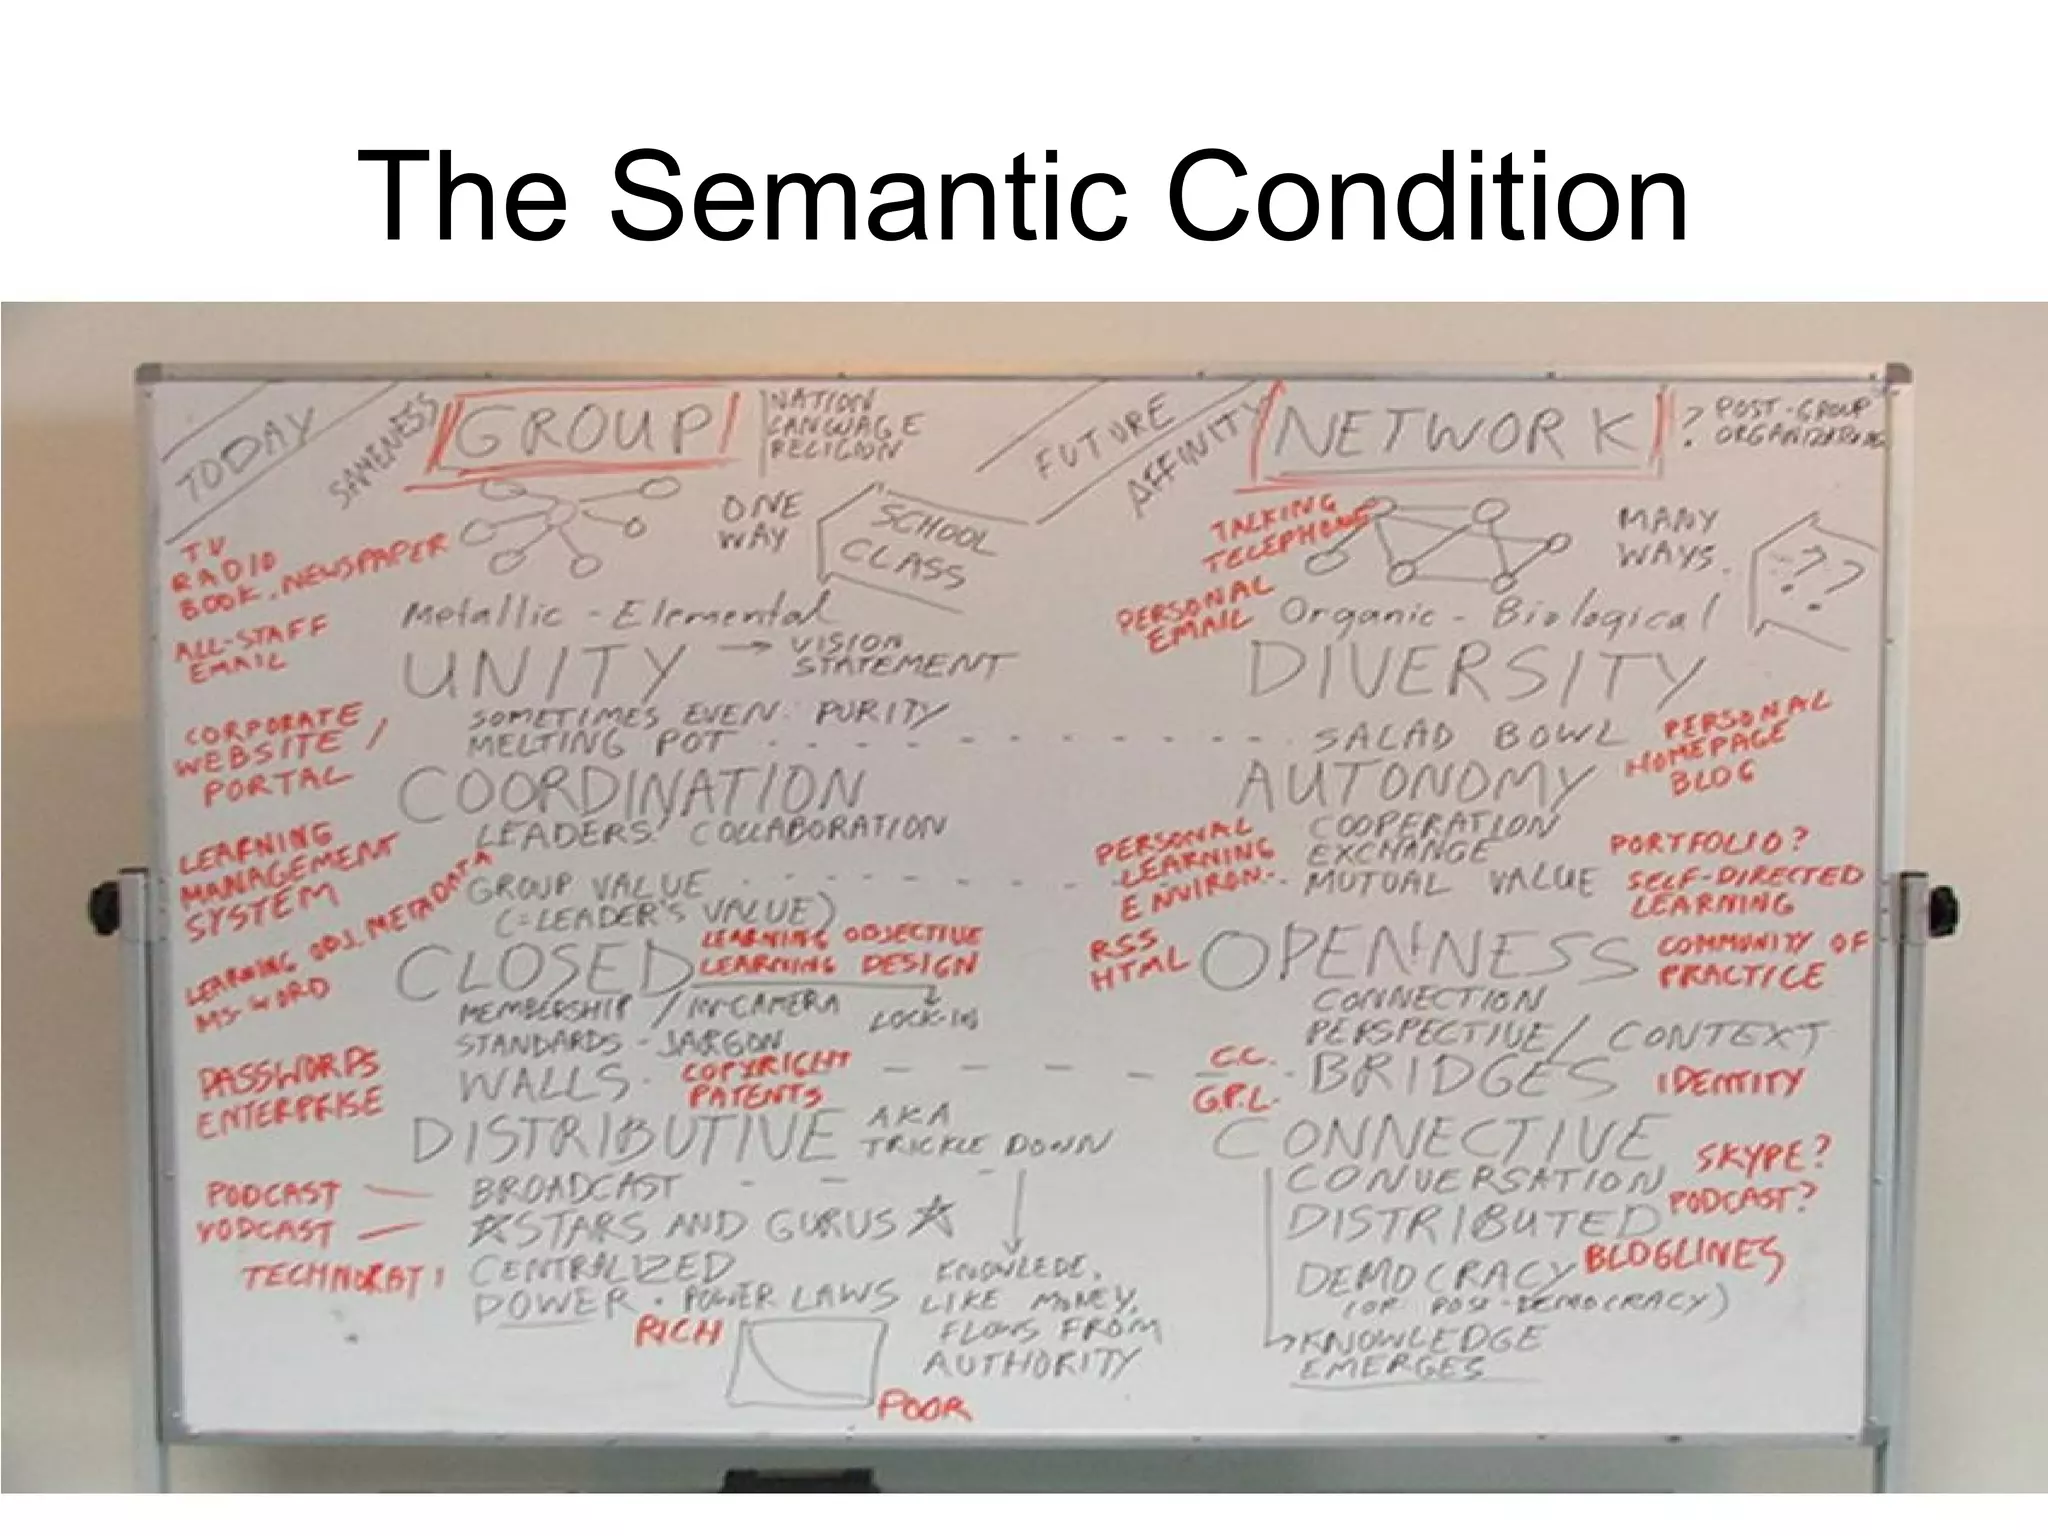 The Semantic Condition
TODAY
SAMENESS
GROUP
NATION
LANGUAGE
RELIGION
TV
RADIO
BOOK, NEWSPAPER
ONE
WAY
SCHOOL
CLASS
Metallic - Elemental
ALL-STAFF
EMAIL
UNITY → VISION
STATEMENT
SOMETIMES EVEN PURITY
MELTING POT
CORPORATE
WEBSITE /
PORTAL
COORDINATION
LEADERS COLLABORATION
LEARNING
MANAGEMENT
SYSTEM
GROUP VALUE
(=LEADER'S VALUE)
LEARNING OBJ. METADATA
MS-WORD
CLOSED
LEARNING OBJECTIVE
LEARNING DESIGN
MEMBERSHIP / IN-CAMERA
LOCK-IN
STANDARDS - JARGON
PASSWORDS
ENTERPRISE
WALLS
COPYRIGHT
PATENTS
DISTRIBUTIVE AKA
TRICKLE DOWN
PODCAST
BROADCAST
VODCAST
STARS AND GURUS
TECHNORATI
CENTRALIZED
POWER . POWER LAWS
RICH
POOR
KNOWLEDE,
LIKE MONEY,
FLOWS FROM
AUTHORITY
FUTURE
AFFINITY
NETWORK
? POST-GROUP
TALKING
TELEPHONE
MANY
WAYS.
? ?
PERSONAL
EMAIL
Organic - Biological
DIVERSITY
SALAD BOWL
PERSONAL
HOMEPAGE
BLOG
AUTONOMY
COOPERATION
EXCHANGE
MUTUAL VALUE
PERSONAL
LEARNING
ENVIRON.
PORTFOLIO?
SELF-DIRECTED
LEARNING
RSS
HTML
OPENNESS
COMMUNITY OF
PRACTICE
CONNECTION
PERSPECTIVE / CONTEXT
C.C.
G.P.L.
BRIDGES
IDENTITY
CONNECTIVE
CONVERSATION
SKYPE?
DISTRIBUTED
PODCAST?
DEMOCRACY
BLOGLINES
(OR POST-DEMOCRACY)
KNOWLEDGE
EMERGES